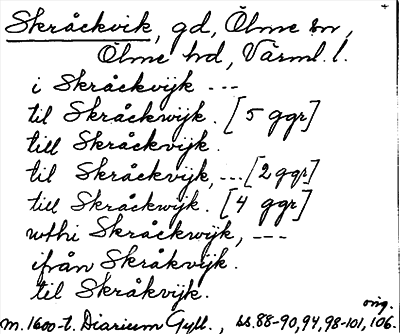 Skråckvik, gd, Ölme sn,
Ölme hd, Värml. l.
i Skråckvijk ---
til Skråckwijk. [5 ggr]
till Skråckvijk.
til Skråckvijk, --- [2 ggr]
till Skråckwijk. [4 ggr]
wthi Skråckwijk, ---
ifrån Skråkvijk.
til Skråkvijk.
orig.
m. 1600-t. Diarium Gyll., ss. 88-90, 94, 98-101, 106.